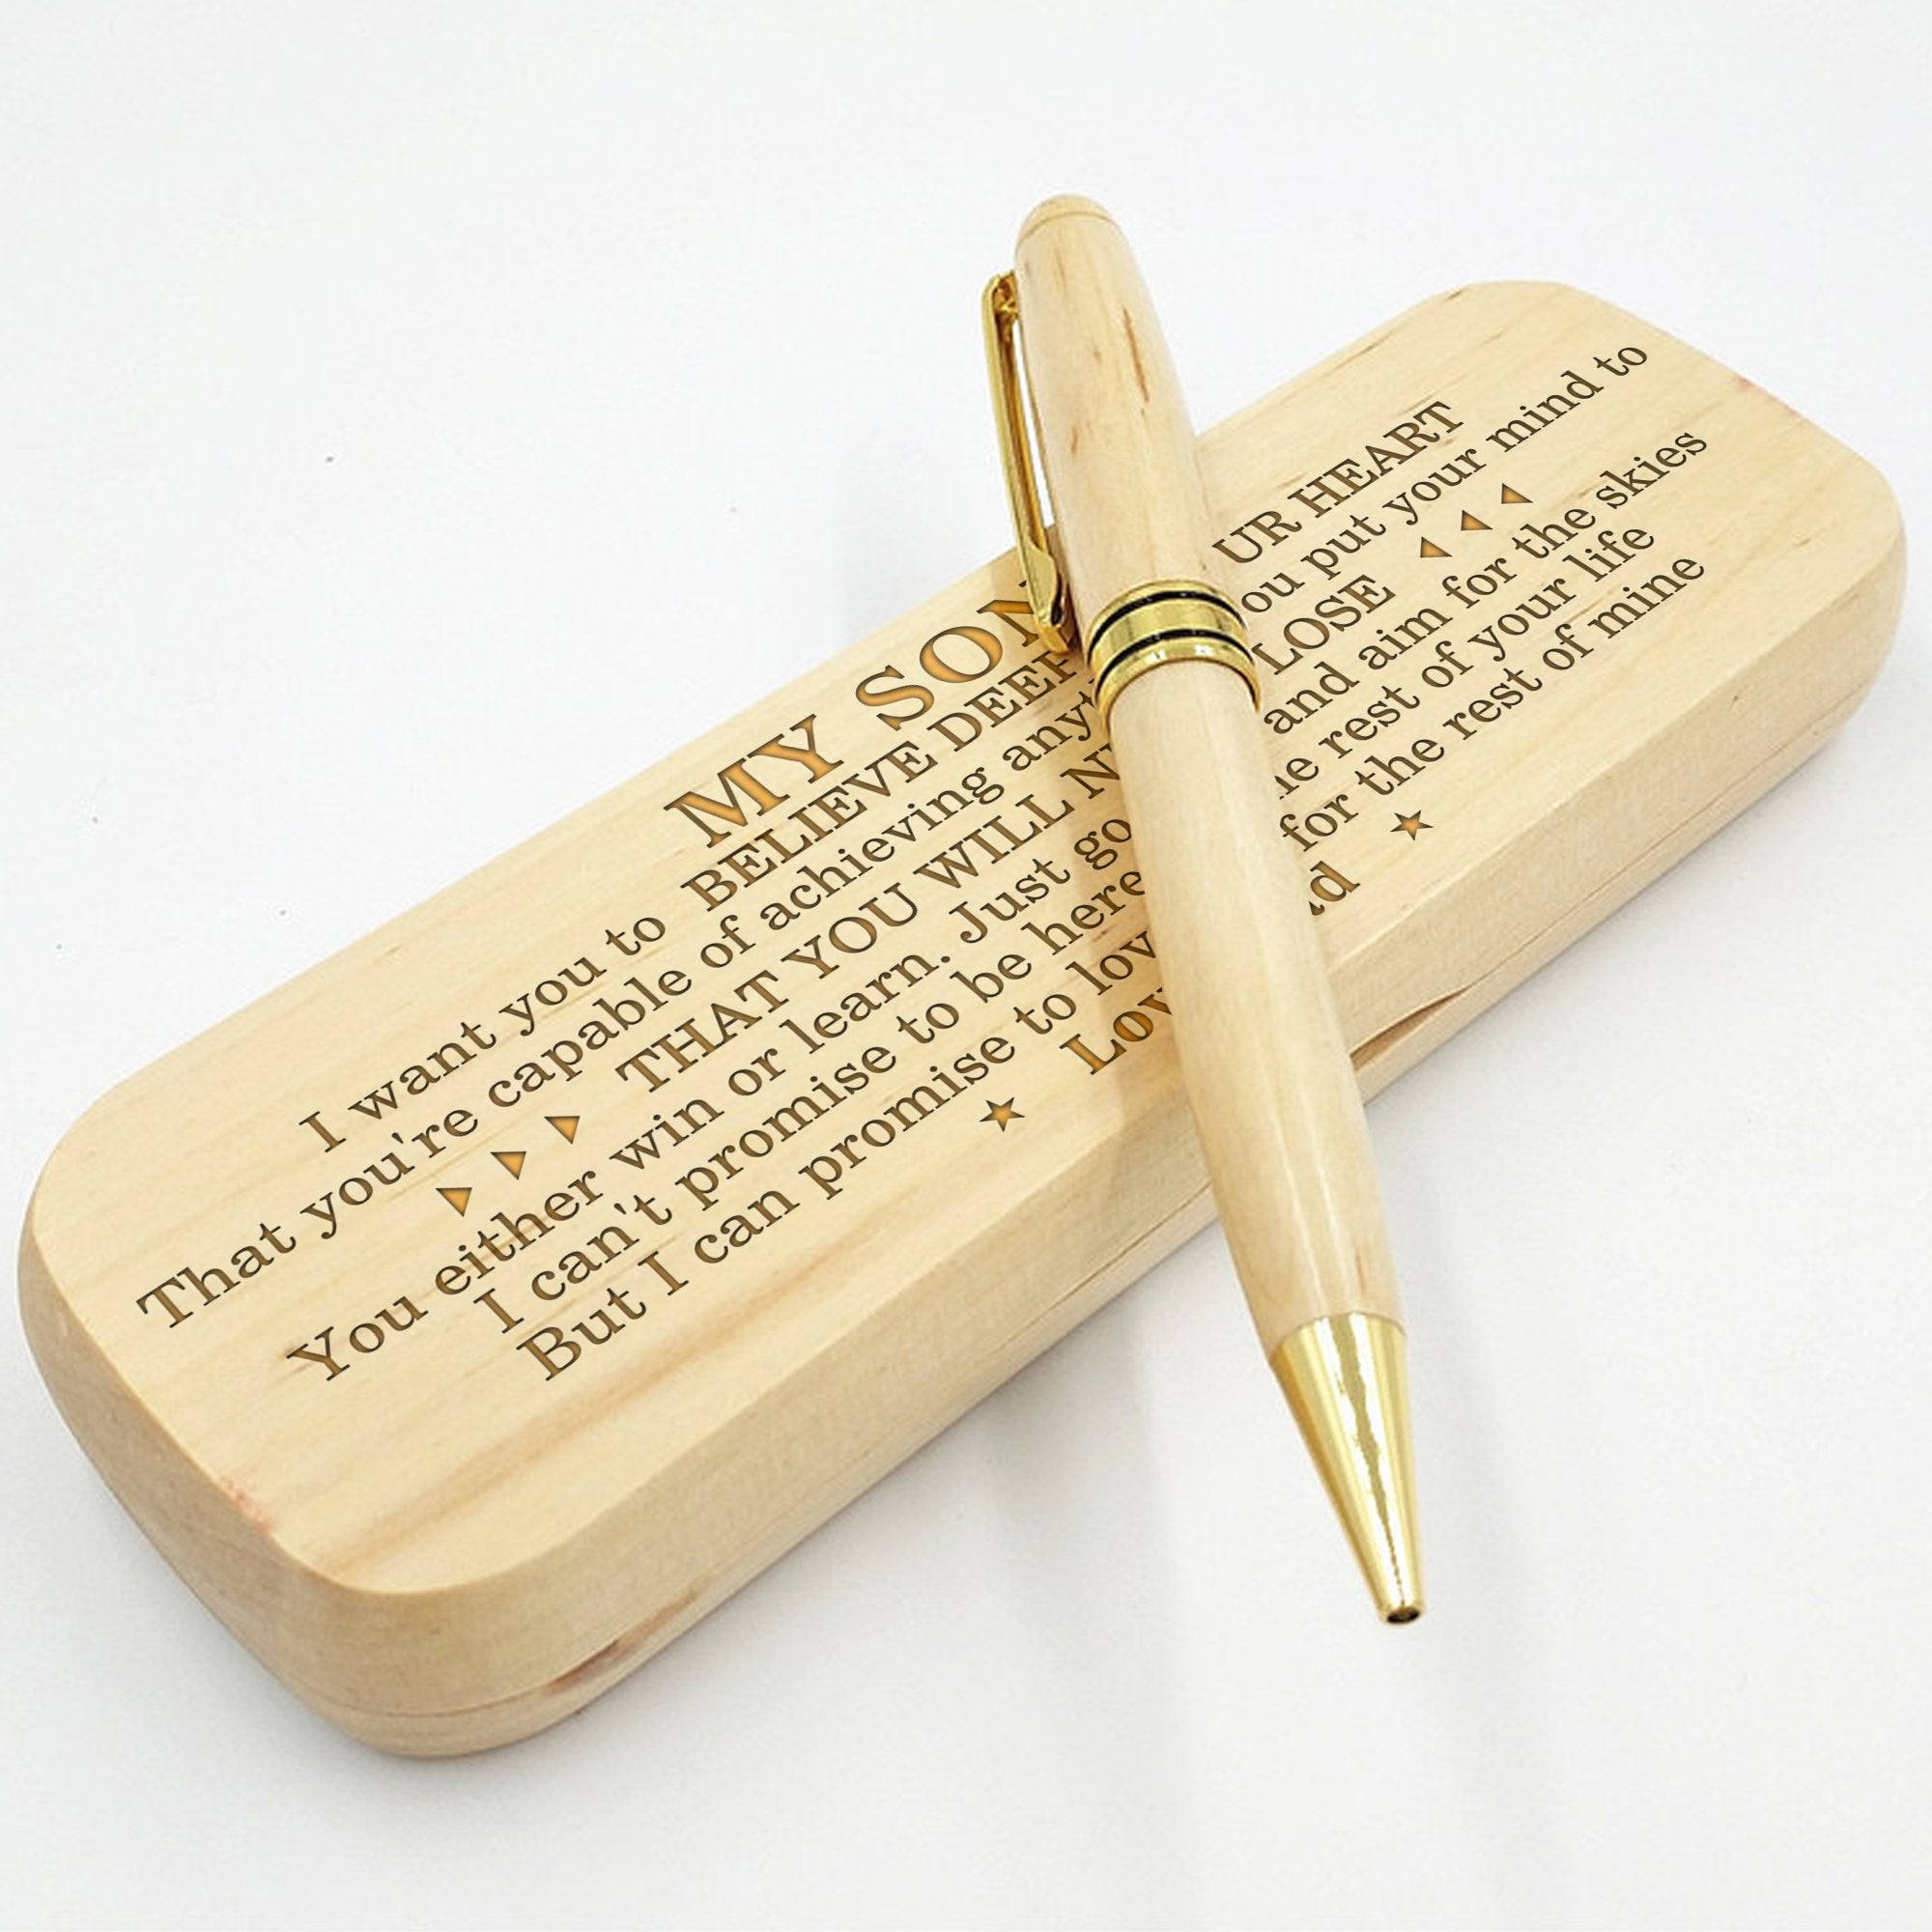 MY SON
I want you to BELIEVE DEEP UR HEART
That you're capable of achieving anyt ou put your mind to
THAT YOU WILL N LOSE
You either win or learn. Just go and aim for the skies
I can't promise to be here he rest of your life
But I can promise to lov for the rest of mine
Lov ad